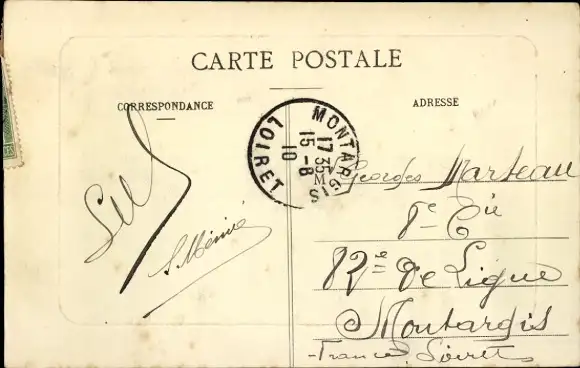 CARTE POSTALE
CORRESPONDANCE
ADRESSE
MONTARGIS
17 35
15 -8
10
LOIRET
S. Ménié
Georges Marteau
8e Cie
82e de Ligne
Montargis
France. Loiret